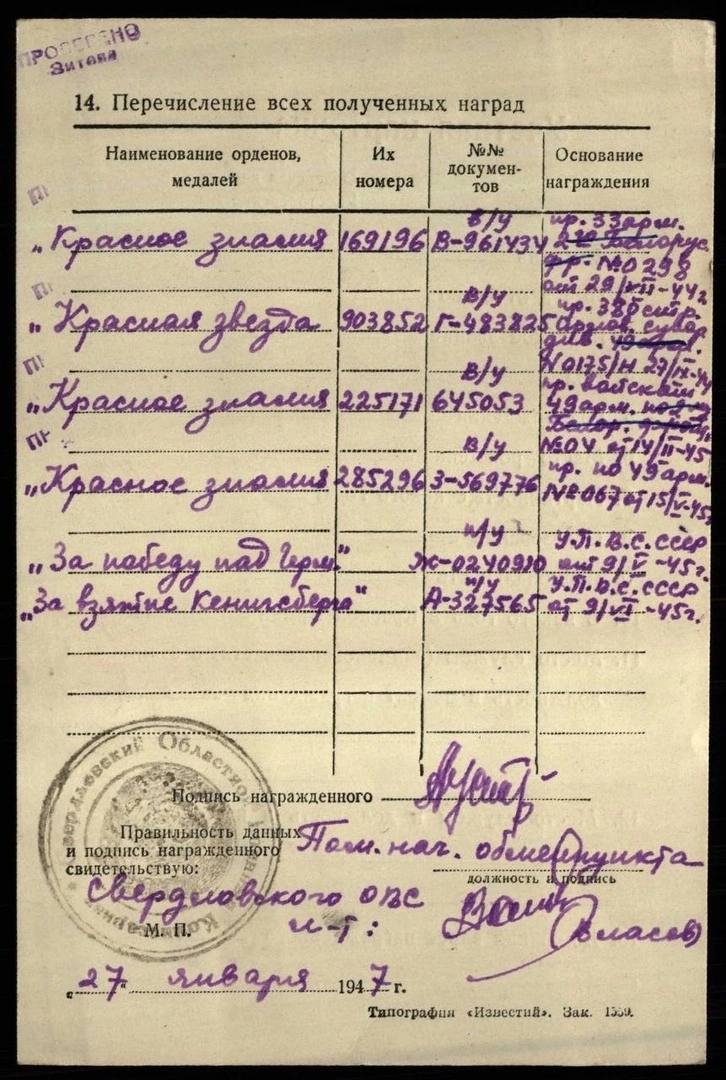 ПРОВЕРЕНО
14. Перечисление всех полученных наград
Наименование орденов, медалей
Их номера
№№ докумен-тов
Основание награждения
„Красное знамя 169196 в/у В-961434 пр. 33 арм.
2го Белорус.
фр. №0298
от 29/VII-44г
„Красная звезда 903852 в/у Г-483825 пр. 385 стр.
див.
№0175/Н 27/IX-44
„Красное знамя 225171 в/у 645053 пр. войскам
49 арм.
№04 от 14/II-45
„Красное знамя 285296 в/у З-569776 пр. по 49 арм.
№067 от 15/V-45г
„За победу над Герм." п/у Ж-0240910 У.П.В.С. СССР
от 9/V-45г.
„За взятие Кенигсберга" п/у А-327565 У.П.В.С. СССР
от 9/VI-45г.
Подпись награжденного
Правильность данных Пом. нач. обменпункта
и подпись награжденного
свидетельствую:
должность и подпись
Свердловского ОВК
М. П. л-т: (Власов)
„27" января 1947 г.
Типография «Известий». Зак. 1559.
Свердловский Областной